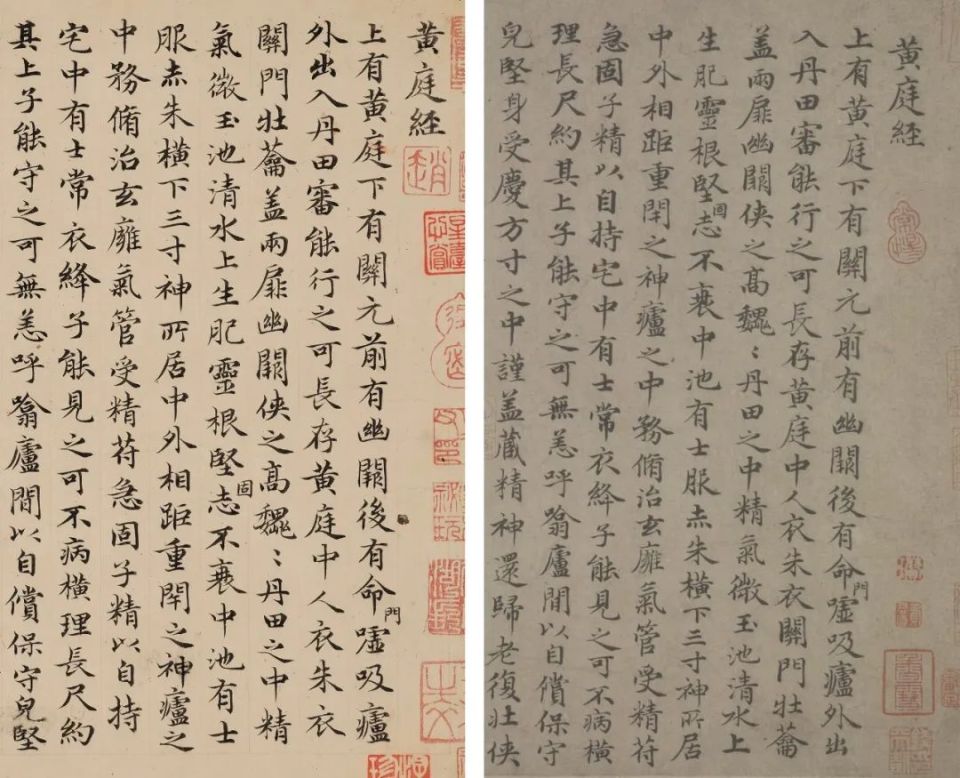 黃庭經
上有黃庭下有關元前有幽闕後有命門噓吸廬
外出入丹田審能行之可長存黃庭中人衣朱衣
關門壯蘥蓋兩扉幽闕俠之高巍〻丹田之中精
氣微玉池清水上生肥靈根堅固志不衰中池有士
服赤朱橫下三寸神所居中外相距重閇之神廬之
中務脩治玄廱氣管受精苻急固子精以自持
宅中有士常衣絳子能見之可不病橫理長尺約
其上子能守之可無恙呼噏廬間以自償保守兒堅
黃庭經
上有黃庭下有關元前有幽闕後有命門噓吸廬外出
入丹田審能行之可長存黃庭中人衣朱衣關門壯蘥
蓋兩扉幽闕俠之高巍〻丹田之中精氣微玉池清水上
生肥靈根堅固志不衰中池有士服赤朱橫下三寸神所居
中外相距重閇之神廬之中務脩治玄廱氣管受精苻
急固子精以自持宅中有士常衣絳子能見之可不病橫
理長尺約其上子能守之可無恙呼噏廬間以自償保守
兒堅身受慶方寸之中謹蓋藏精神還歸老復壯俠